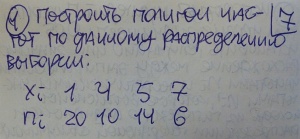 ① Построить полигон час- 7
тот по данному распределению
выборки:
xi 1 4 5 7
ni 20 10 14 6